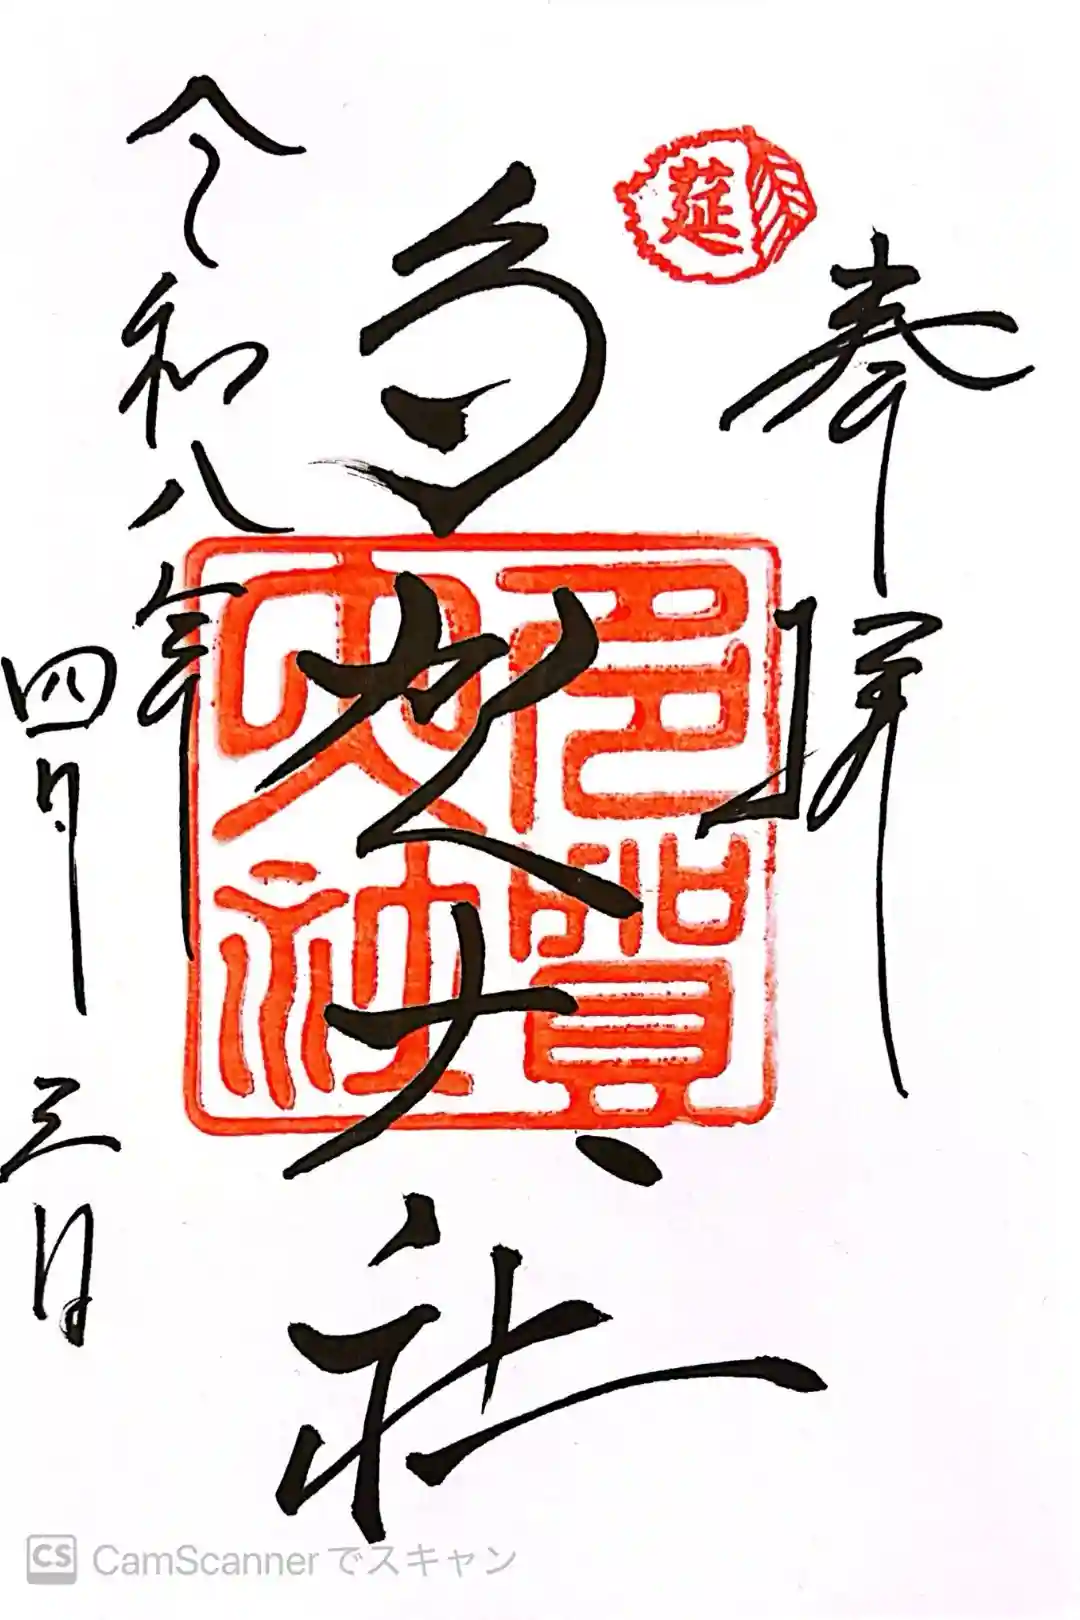 奉拝
莚
多賀大社
多賀大社
令和八年
四月三日
CS CamScannerでスキャン